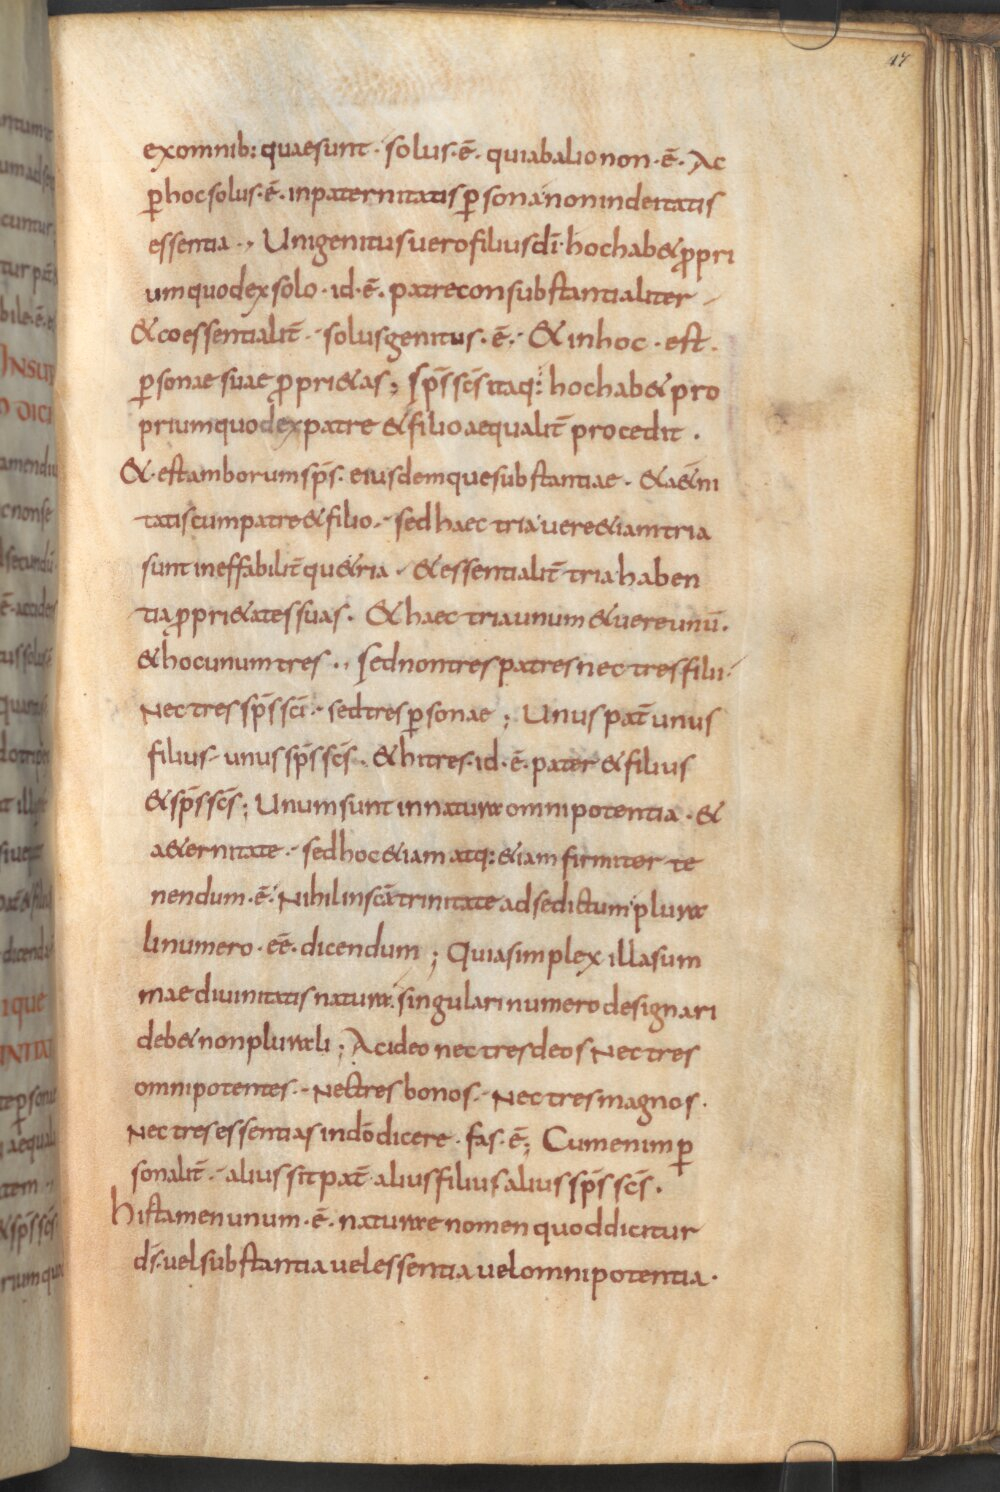 17
exomnib: quaesunt · solus · ē · quiabalionon · ē · Ac
p̲hocsolus · ē · inpaternitatis p̲sona nonindeitatis
essentia ·, Unigenitusuerofiliusdī · hochab& p̲pri
umquodexsolo · id · ē · patreconsubstantialiter
&coessentialit̄ · solusgenitus · ē · & inhoc · est ·
p̲sonae suae p̲pri&as ; sp̄s sc̄s itaq: hochab& pro
priumquodexpatre & filioaequalit̄ procedit ·
& · estamborumsp̄s · eiusdemquesubstantiae · & a&ni
tatiscumpatre&filio · sed haec tria uere&iamtria
sunt ineffabilit̄ qu&ria · &essentialit̄ tria haben
tia p̲pri&atessuas · & haec triaunum &uereunū ·
&hocunumtres ·, sednontrespatresnec tresfilii
Nectres sp̄s sc̄i · sedtres p̲sonae ; Unus pat̄ unus
filius · unus sp̄s sc̄s · & hitres · id · ē · pater & filius
& sp̄s sc̄s ; Unumsunt innatura omnipotentia · &
a&ernitate · sedhoc&iam atq: &iam firmiter te
nendum · ē · Nihilinscātrinitate adsedictum plura
linumero · eē · dicendum ; Quiasimplex illasum
mae diuinitatis natura · singularinumerodesignari
deb& nonplurali ; Acideo nec tresdeos Nectres
omnipotentes · Nectres bonos · Nectresmagnos ·
Nectresessentias indōdicere · fas · ē ; Cumenim p̲
sonalit̄ · alius sit pat̄ aliusfilius alius sp̄s sc̄s ·
histamenunum · ē · naturaenomen quoddicitur
ds̄ · uelsubstantia uelessentia uelomnipotentia ·